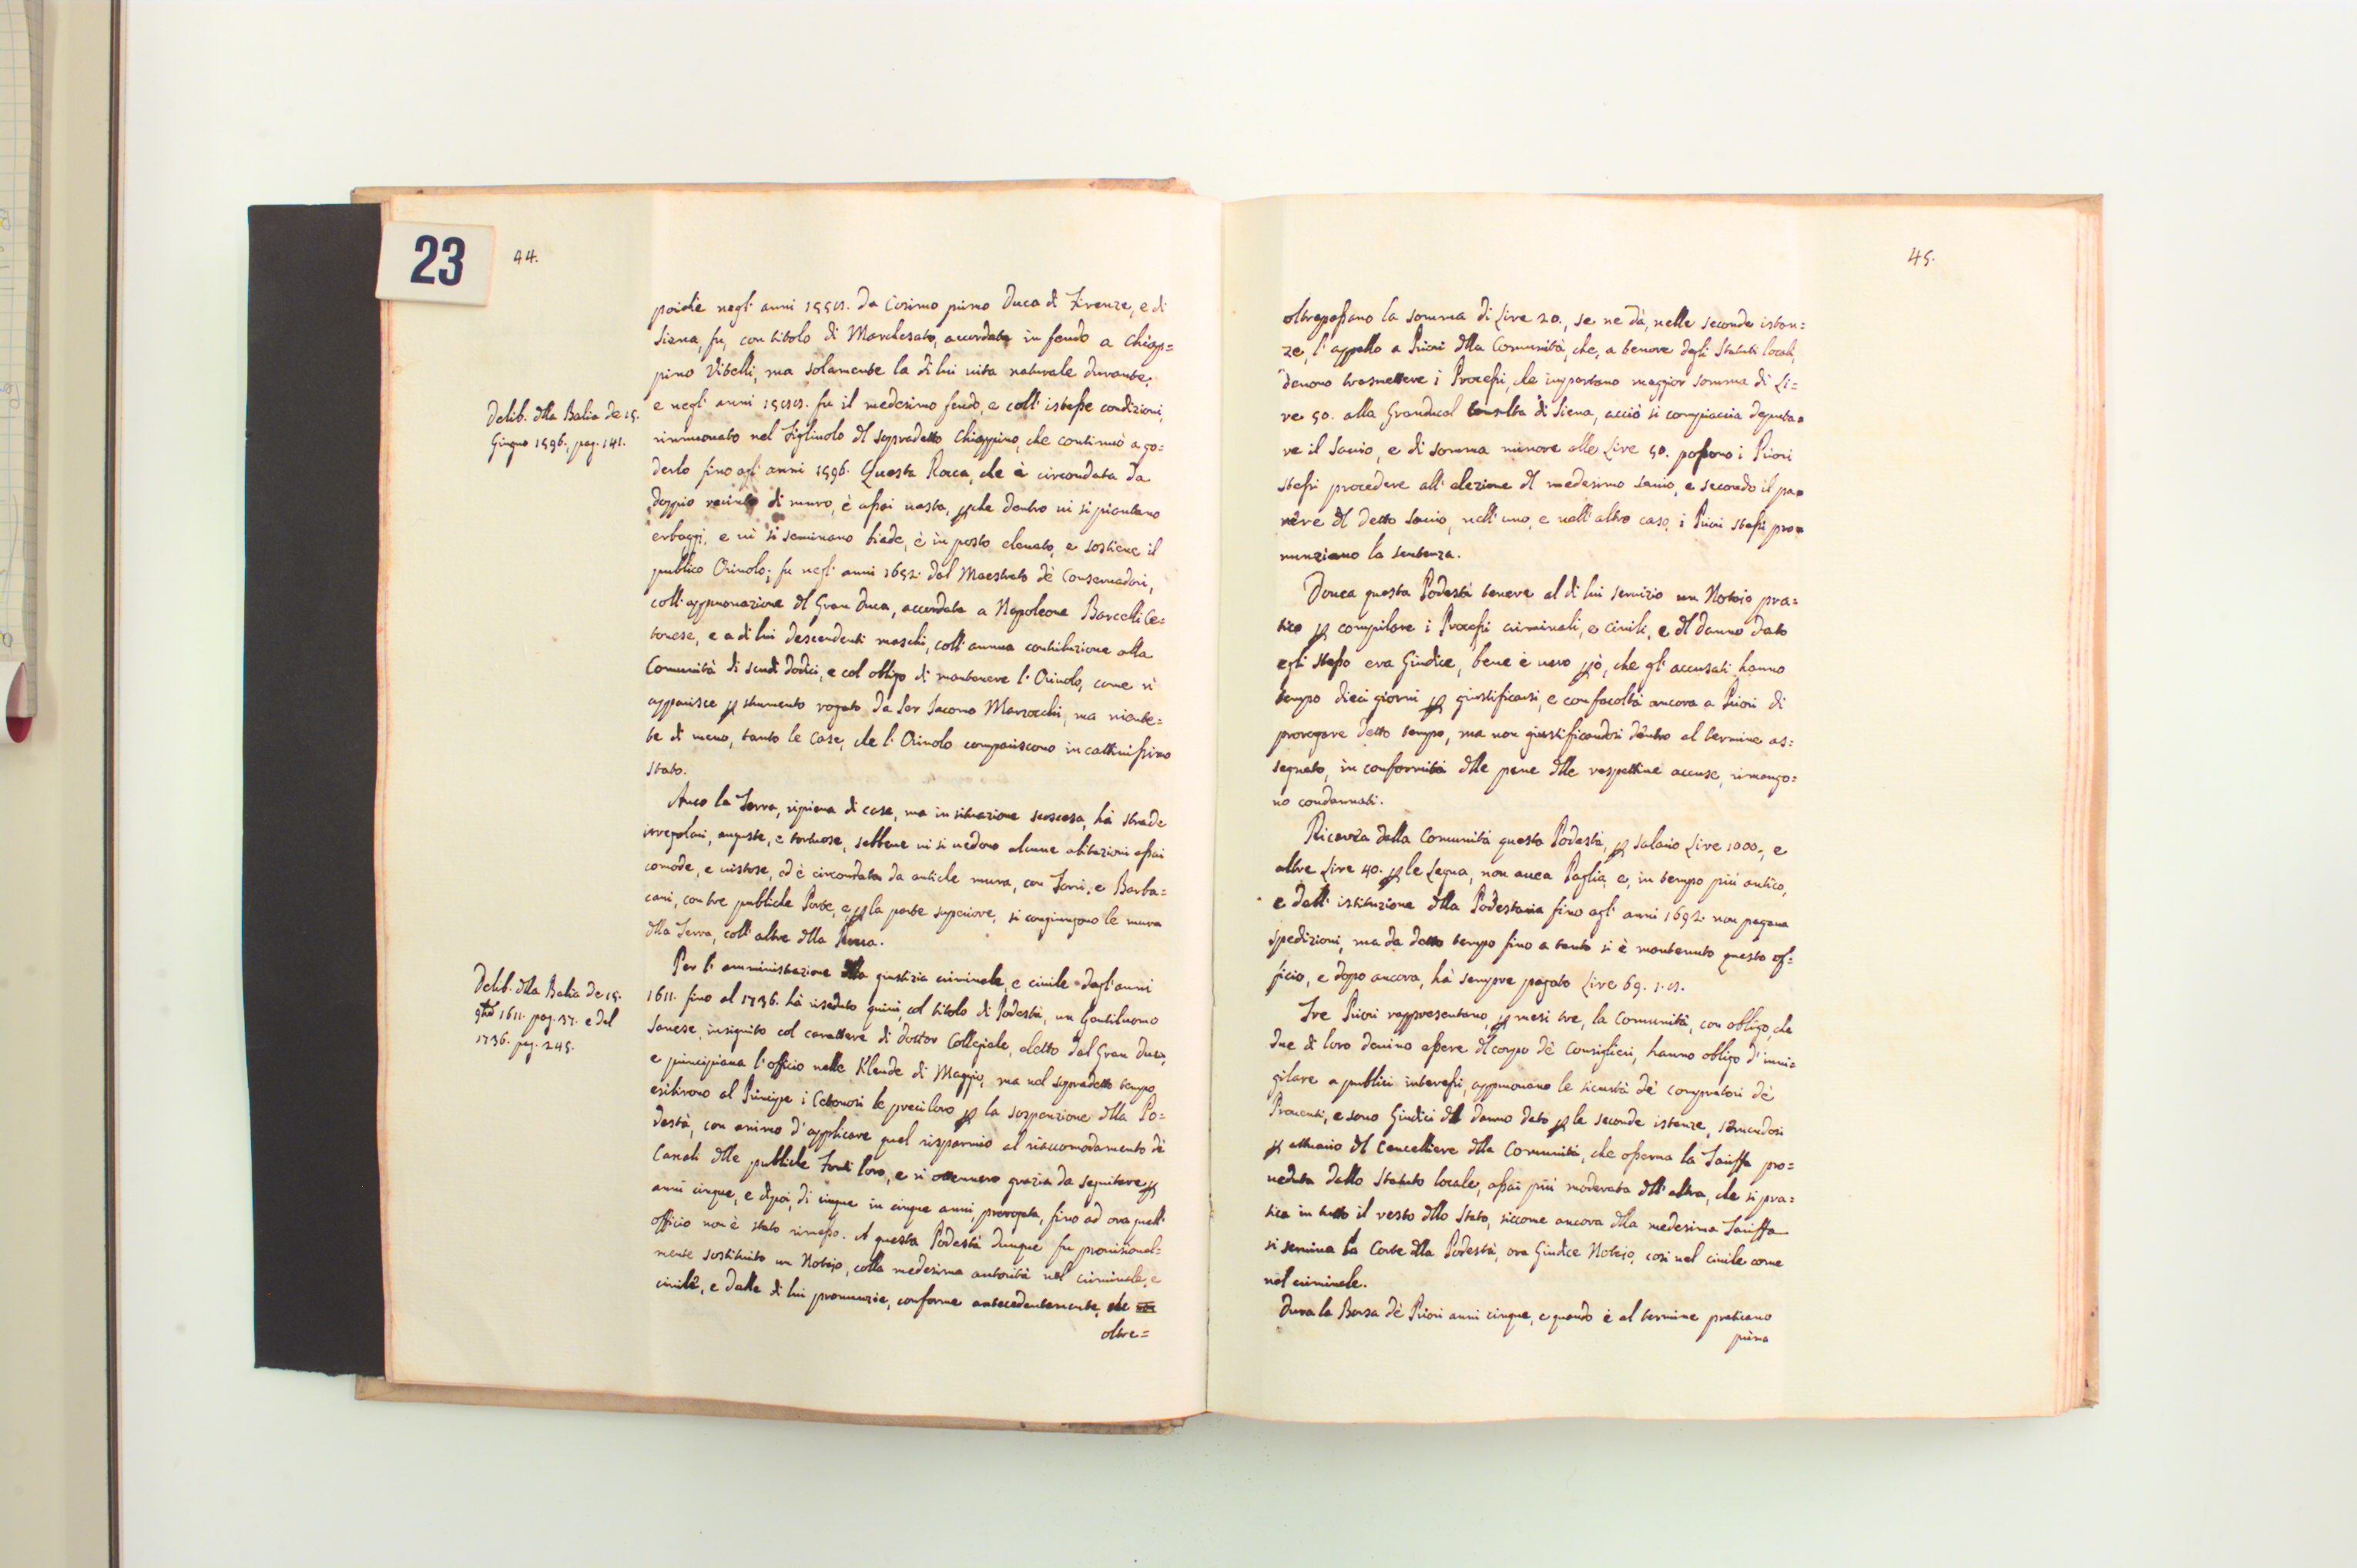 23
44.
poiche negl' anni 155 . da Cosimo primo Duca di Firenze, e di
Siena, fu, con titolo di Marchesato, accordata in feudo a Chiap=
pino Vitelli, ma solamente la di lui vita naturale durante,
e negl' anni fu il medesimo feudo, e coll' istesse condizioni,
rinnuovato nel Figliuolo dl sopradetto Chiappino, che continuò a go=
derlo fino agl' anni 1596. Questa Rocca, che è circondata da
doppio recinto di muro, è assai vasta, pche dentro vi si piantano
erbaggi, e vi si seminano biade, è in posto elevato, e sostiene il
publico Oriuolo; fu negl' anni 1652. dal Maestrato de' Conservadori,
coll' appruovazione dl Gran Duca, accordata a Napoleone Barcelli Ce=
tonese, e a di lui descendenti maschi, coll' annua contribuzione alla
Comunità di scudi dodici, e col obligo di mantenere l' Oriuolo, come si
apparisce p strumento rogato da Ser Iacomo Marzocchi, ma niente=
te di meno, tanto le case, che l' Oriuolo compariscono in cattivissimo
stato.
Anco la Terra, ripiena di case, ma in situazione scoscesa, hà strade
irregolari, anguste, e tortuose, sebbene vi si vedono alcune abitazioni assai
comode, e vistose, ed è circondata da antiche mura, con Torri, e Barba=
cani, con tre publiche Porte, e, p la parte superiore, si congiungono le mura
dlla Terra, coll' altre dlla Rocca.
Per l' amministrazione dlla giustizia criminale, e civile dagl' anni
1611. fino al 1736. hà riseduto quivi, col titolo di Podestà, un Gentiluomo
Sanese, insignito col carattere di Dottor Collegiale, eletto dal Gran Duca,
e principiava l' officio nelle Klende di Maggio, ma nel sopradetto tempo,
esibirono al Principe i Cetonesi le preci loro p la sospenzione dlla Po=
destà, con animo d' applicare quel risparmio al riaccomodamento de'
Canali dlle publiche Fonti loro, e ni ottennero grazia da seguitare p
anni cinque, e dipoi, di cinque in cinque anni prorogata, fino ad ora quell'
officio non è stato rimesso. A questa Podestà dunque fu provisional=
mente sostituito un Notaio, colla medesima autorità nel criminale, e
civile, e dalle di lui pronunzie, conforme antecedentemente, che
oltre=
Delib. dlla Balia de 15.
Giugno 1596. pag. 141.
Delib. dlla Balia de 15.
9bre 1611. pag. 37. e del
1736. pag. 245.
45.
oltrepassano la somma di Lire 20., se ne dà, nelle seconde istan=
ze, l' appello a Priori dlla Comunità, che, a tenore degli Statuti locali,
devono trasmettere i Processi, che importano maggior somma di Li=
re 50. alla Granducal Consulta di Siena, acciò si compiaccia deputa=
re il Savio, e di somma minore alle Lire 50. possono i Priori
stessi procedere all' elezione dl medesimo savio, e secondo il pa=
rere dl detto Savio, nell' uno, e nell' altro caso, i Priori stessi pro=
nunziano la sentenza.
Doveva questa Podestà tenere al di lui servizio un Notaio pra=
tico p compilare i Processi criminali, e civili, e dl danno dato
egli stesso era Giudice, bene è vero pò, che gl' accusati hanno
tempo dieci giorni p giustificarsi, e con facoltà ancora a Priori di
prorogare detto tempo, ma non giustificandosi dentro al termine as=
segnato, in conformità dlle pene dlle respettive accuse, rimango=
no condannati.
Riceveva dalla Comunità questa Podestà, p salario Lire 1000., e
altre Lire 40. p le Legna, non avea Paglia, e, in tempo più antico,
e dall' istituzione dlla Podestaria fino agl' anni 1692. non pagava
spedizioni, ma da detto tempo fino a tanto si è mantenuto questo of=
ficio, e dopo ancora, hà sempre pagato Lire 69.
Tre Priori rappresentano, p mesi tre, la Comunità, con obligo, che
due di loro devino essere dl corpo de' Consiglieri, hanno obligo d' invi=
gilare a publici interessi, appruovano le sicurtà de' compratori de'
Proventi, e sono Giudici dl danno dato p le seconde istanze, servendosi
p attuario dl Cancelliere dlla Comunità, che osserva la Tariffa pro=
veduta dallo Statuto locale, assai più moderata dll' altra, che si pra=
tica in tutto il resto dllo Stato, siccome ancora dlla medesima Tariffa
si serviva la Corte dlla Podestà, ora Giudice Notaio, così nel civile come
nel criminale.
Dura la Borsa de' Priori anni cinque, e quando è al termine praticano
prima